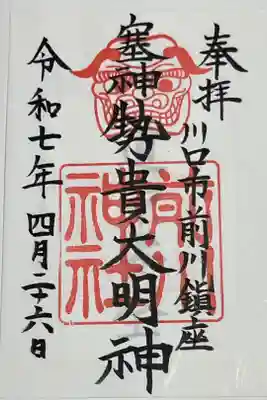 奉拝
川口市前川鎮座
塞神勢貴大明神
令和七年四月二十六日
前川神社